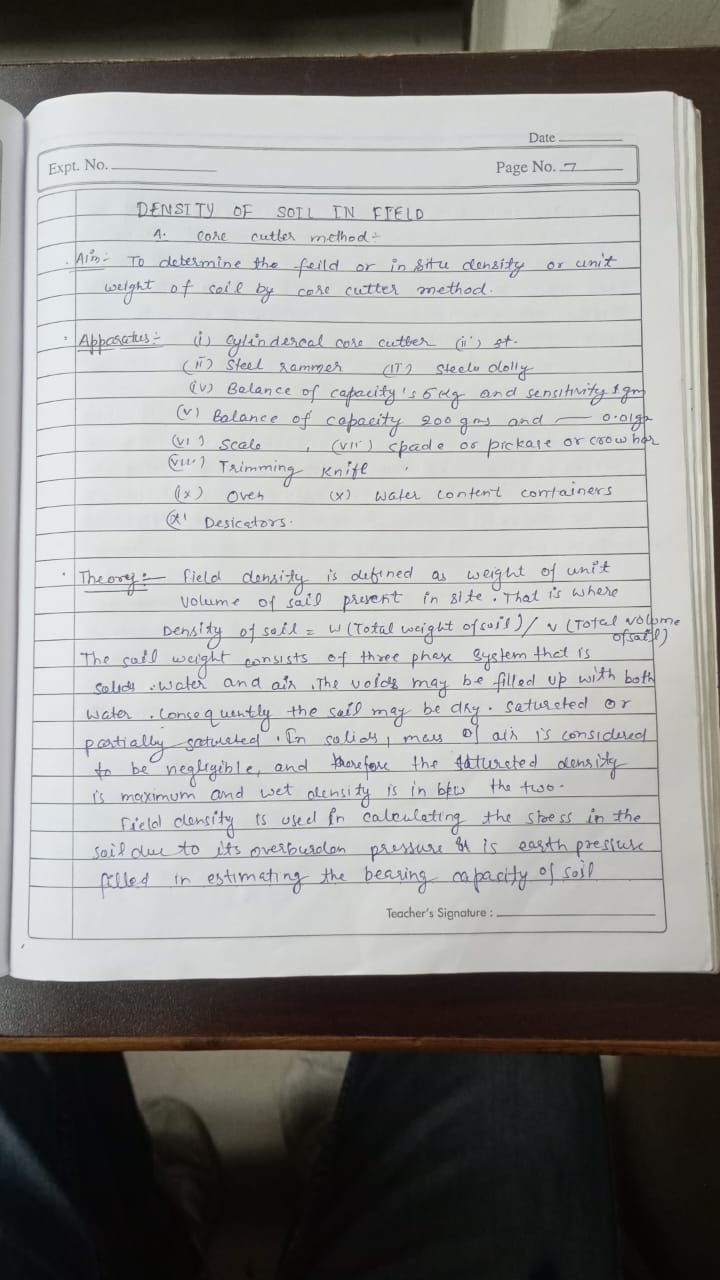 Date
Expt. No.
Page No. 7
DENSITY OF SOIL IN FIELD
A. core cutter method :-
Aim:- To determine the feild or in situ density or unit
weight of soil by core cutter method.
Apparatus :- (i) Cylindercal core cutter (ii) st.
(ii) Steel rammer (III) Steele dolly
(iv) Balance of capacity's 5 Kg and sensitivity 1 gm
(v) Balance of capacity 200 gms and — 0.01gm
(vi) Scale , (vii) spade or pickaxe or crow bar
(viii) Trimming Knife .
(ix) Oven (x) Water content containers
(xi Desicators.
Theory :- Field density is defined as weight of unit
Volume of soil present in site . That is where
Density of soil = W (Total weight of soil) / V (Total volume
of soil)
The soil weight consists of three phase system that is
Solids . Water and air . The voids may be filled up with both
Water . Consequently the soil may be dry . Saturated or
partially saturated . In solids , mass of air is considered
to be negligible, and therefore the saturated density
is maximum and wet density is in btw the two.
Field density is used in calculating the stress in the
soil due to its overburden pressure it is earth pressure
filled in estimating the bearing capacity of soil
Teacher's Signature :